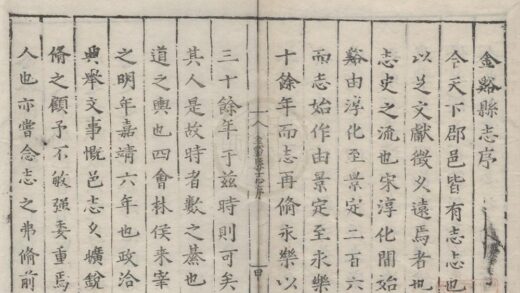 金谿縣志序
今天下郡邑皆有志志也
以足文獻徵久遠焉者也
志史之流也宋淳化間始
谿由淳化至景定二百六
而志始作由景定至永樂
十餘年而志再脩永樂以
金谿縣志序
三十餘年于兹時則可矣
其人是故時者數之綦也
道之輿也四會林侯來宰
之明年嘉靖六年也政洽
典舉文事慨邑志久曠銳
脩之顧予不敏强委重焉
人也亦嘗念志之弗脩前